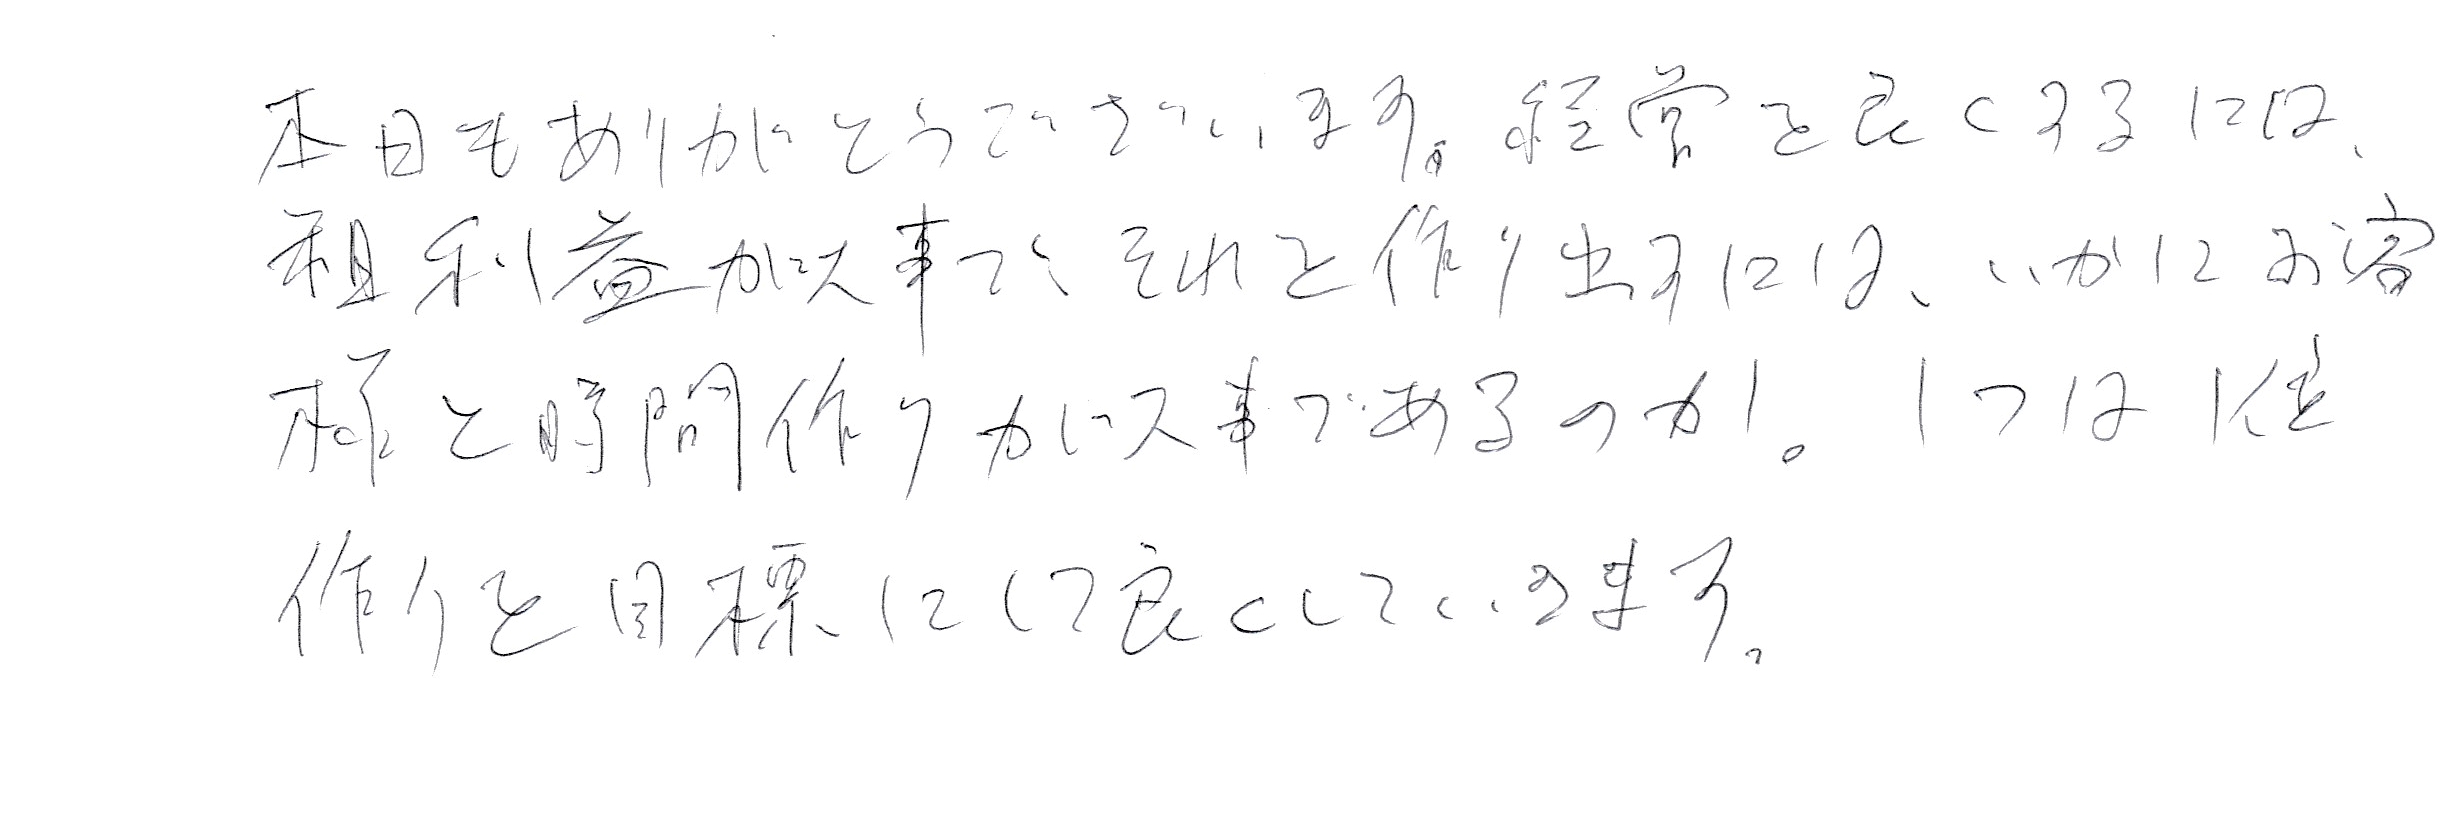 本日もありがとうございます。経営を良くするには、
粗利益が大事で、それを作り出すには、いかにお客
様と時間作りが大事であるのか。1つは1位
作りを目標にして良くしていきます。